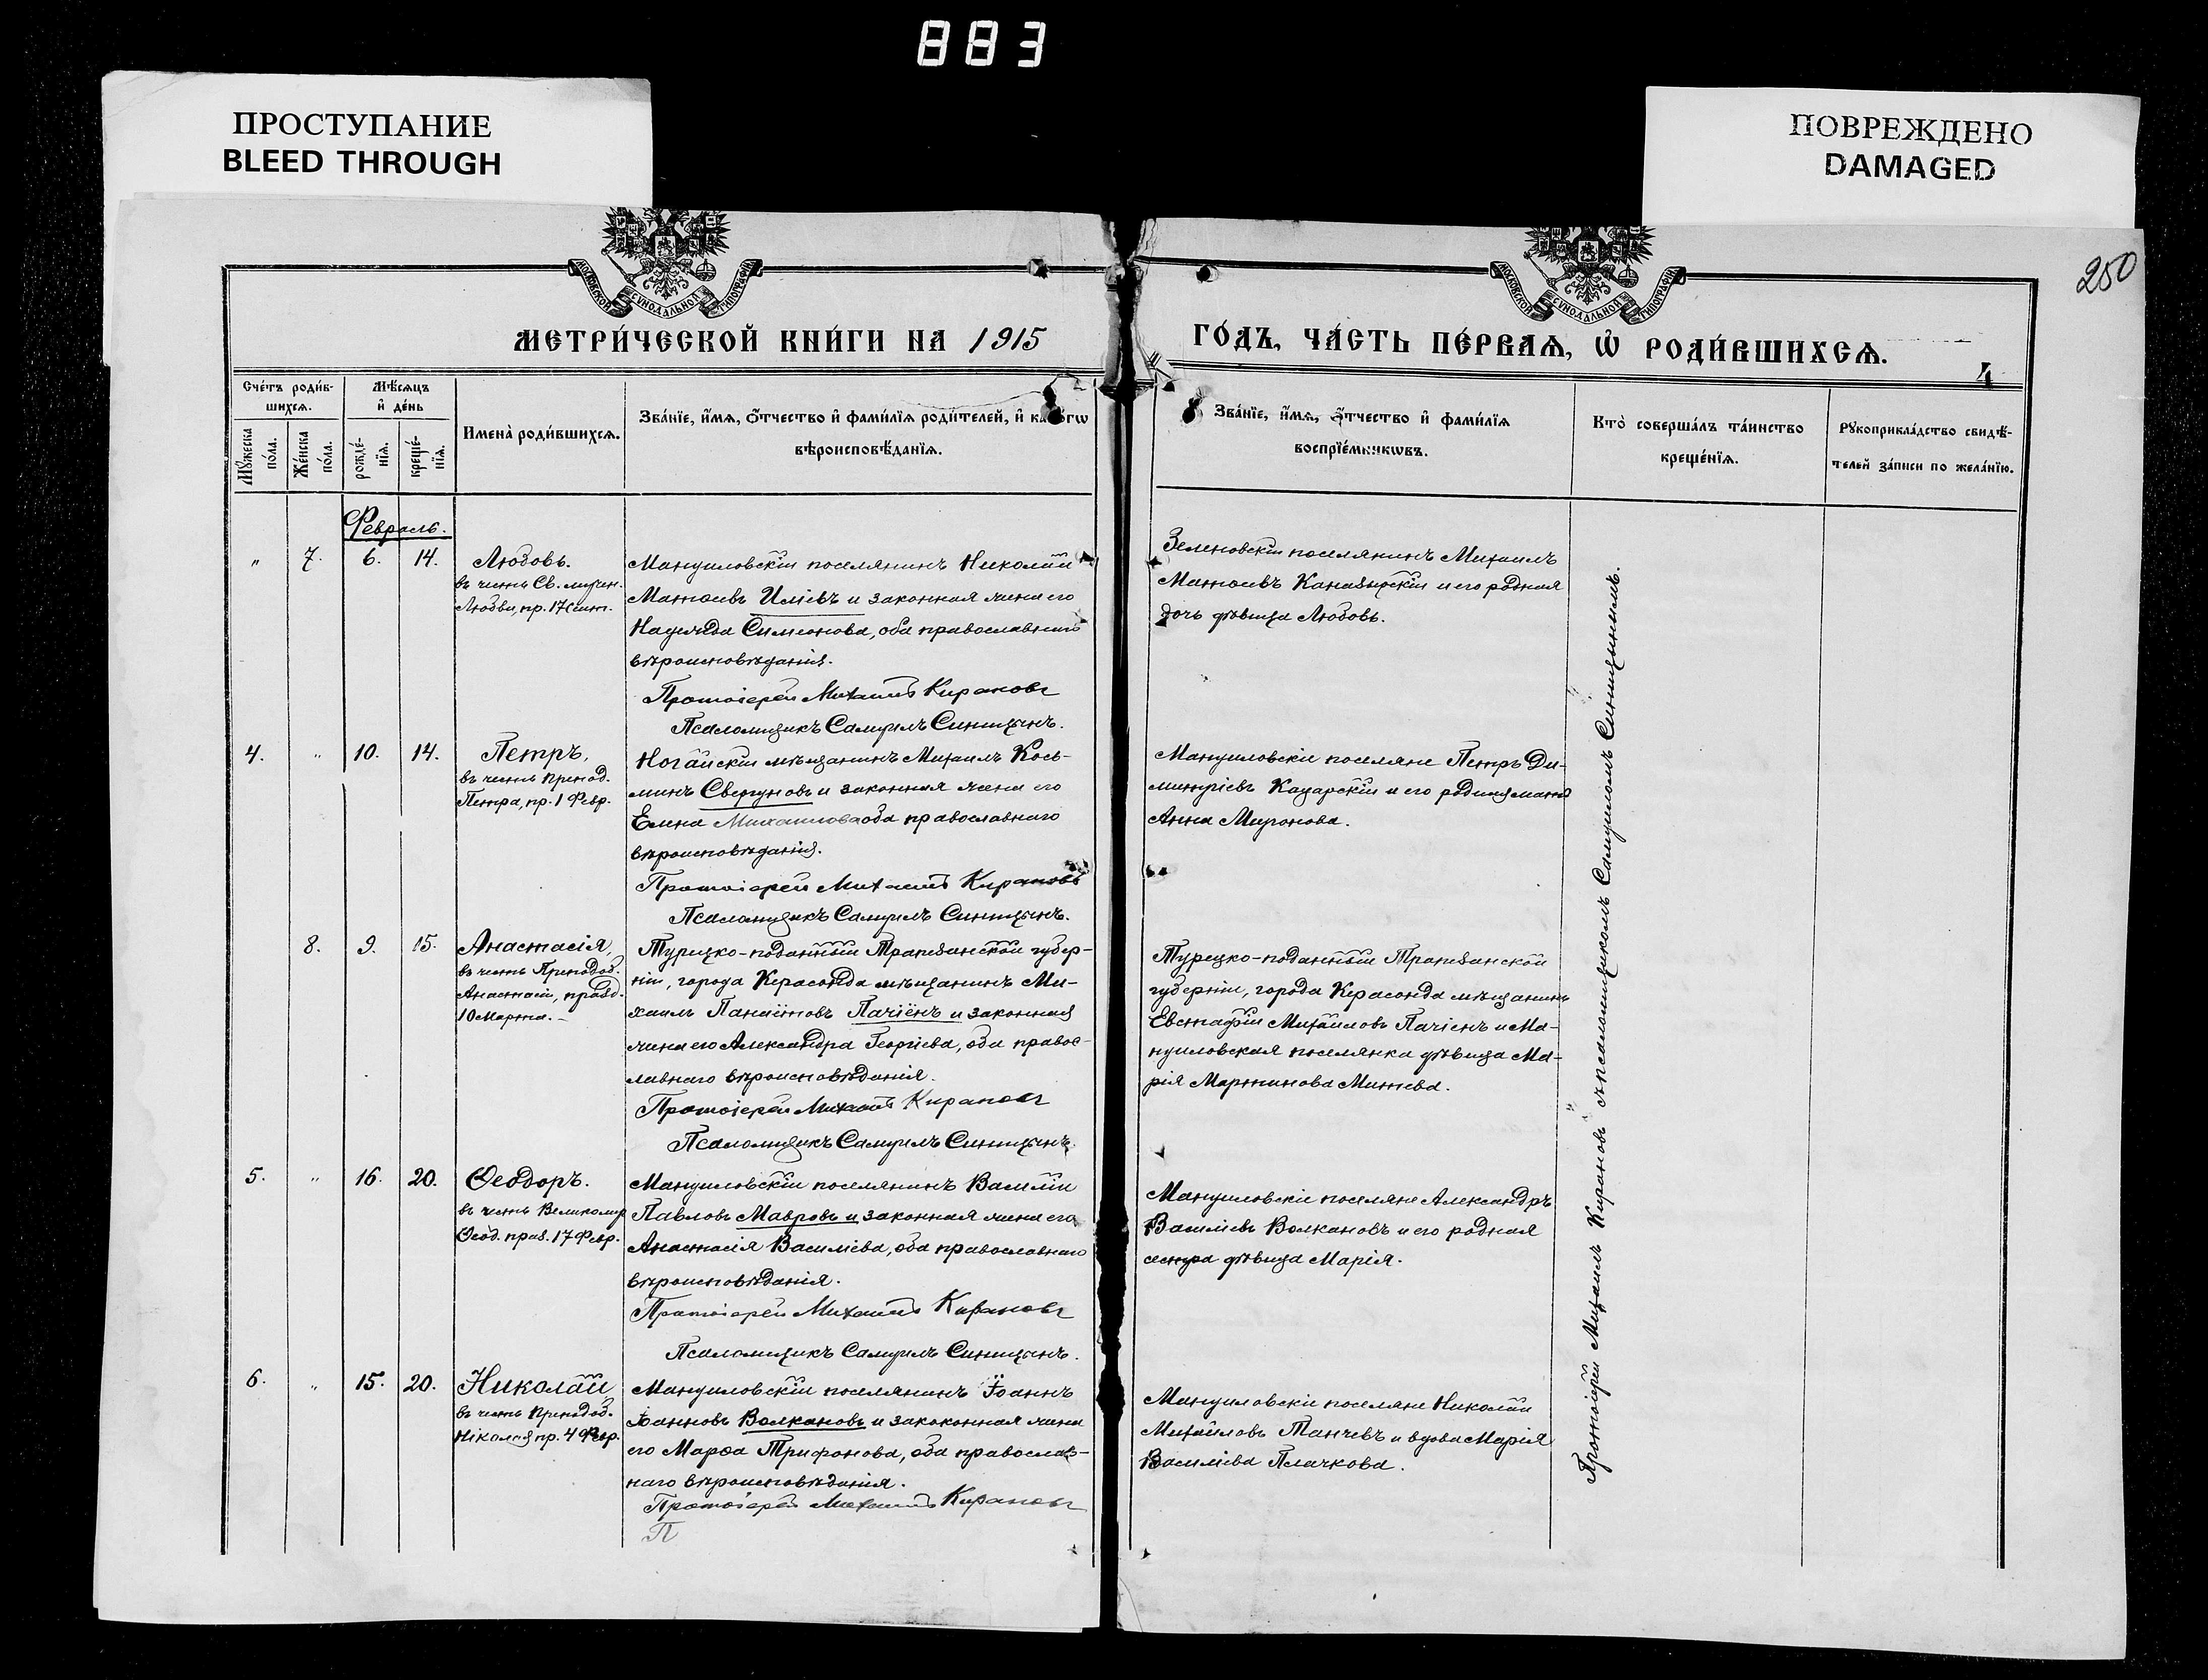 883
ПРОСТУПАНИЕ
BLEED THROUGH
ПОВРЕЖДЕНО
DAMAGED
250
МОСКОВСКОЙ СѴНОДАЛЬНОЙ ТИПОГРАФІИ
МОСКОВСКОЙ СѴНОДАЛЬНОЙ ТИПОГРАФІИ
МЕТРИ́ЧЕСКОЙ КНИ́ГИ НА 1915
ГО́ДЪ, ЧА́СТЬ ПЕ́РВАѦ, Ѡ҆ РОДИ́ВШИХСѦ.
4
Сче́тъ роди́в-
шихсѧ.
Мꙋ́жеска
по́ла.
Же́нска
по́ла.
Мѣ́сѧцъ
и҆ де́нь
рожде́-
нїѧ.
креще́-
нїѧ.
Имена̀ роди́вшихсѧ.
Зва́нїе, и҆́мѧ, ѻ҆́тчество и҆ фами́лїѧ роди́телей, и҆ како́гѡ
вѣроисповѣ́данїѧ.
Зва́нїе, и҆́мѧ, ѻ҆́тчество и҆ фами́лїѧ
воспрїе́мникѡвъ.
Кто̀ соверша́лъ та́инство
креще́нїѧ.
Рꙋкоприкла́дство свидѣ́-
телей за́писи по жела́нїю.
Февраль.
" 7. 6. 14. Любовь.
въ честь Св. мучен.
Любви, пр. 17 Сент.
Мануиловскій поселянинъ Николай
Матѳеевъ Иліевъ и законная жена его
Надежда Симеонова, оба православнаго
вѣроисповѣданія.
Протоіерей Михаилъ Кирановъ
Псаломщикъ Самуилъ Синицынъ.
Зеленовскій поселянинъ Михаилъ
Матѳеевъ и его родная
дочь дѣвица Любовь.
4. " 10. 14. Петръ,
въ честь препод.
Петра, пр. 1 Февр.
Ногайскій мѣщанинъ Михаилъ Кось-
минъ Свергуновъ и законная жена его
Елена Михаилова оба православнаго
вѣроисповѣданія.
Протоіерей Михаилъ Кирановъ
Псаломщикъ Самуилъ Синицынъ.
Мануиловскіе поселяне Петръ Ди-
митріевъ и его родная мать
Анна Миронова.
8. 9. 15. Анастасія,
въ честь Преподоб.
Анастасіи, празд.
10 Марта. -
Турецко-поданный Трапезанской губер-
ніи, города Керасонда мѣщанинъ Ми-
хаилъ Панаіотовъ Пачіенъ и законная
жена его Александра Георгіева, оба правос-
лавнаго вѣроисповѣданія.
Протоіерей Михаилъ Кирановъ
Псаломщикъ Самуилъ Синицынъ.
Турецко-поданный Трапезанской
губерніи, города Керасонда мѣщанинъ
Евстафій Михайловъ Пачіенъ и Ма-
нуиловская поселянка дѣвица Ма-
рія Мартинова Митева.
5. " 16. 20. Ѳеодоръ.
въ честь Великомуч
Ѳеод. праз. 17 Февр.
Мануиловскій поселянинъ Василій
Павловъ Мавровъ и законная жена его
Анастасія Василіева, оба православнаго
вѣроисповѣданія.
Протоіерей Михаилъ Кирановъ
Псаломщикъ Самуилъ Синицынъ.
Мануиловскіе поселяне Александръ
Василіевъ Волкановъ и его родная
сестра дѣвица Марія.
6. " 15. 20. Николай
въ честь Преподоб.
Николая пр. 4 Февр.
Мануиловскій поселянинъ Іоаннъ
Іоанновъ Волкановъ и закоконная жена
его Марѳа Трифонова, оба православ-
наго вѣроисповѣданія.
Протоіерей Михаилъ Кирановъ
П
Мануиловскіе поселяне Николай
Михайловъ Танчевъ и вдова Марія
Василіева Плачкова.
Протоіерей Михаилъ Кирановъ съ псаломщикомъ Самуиломъ Синицынымъ.